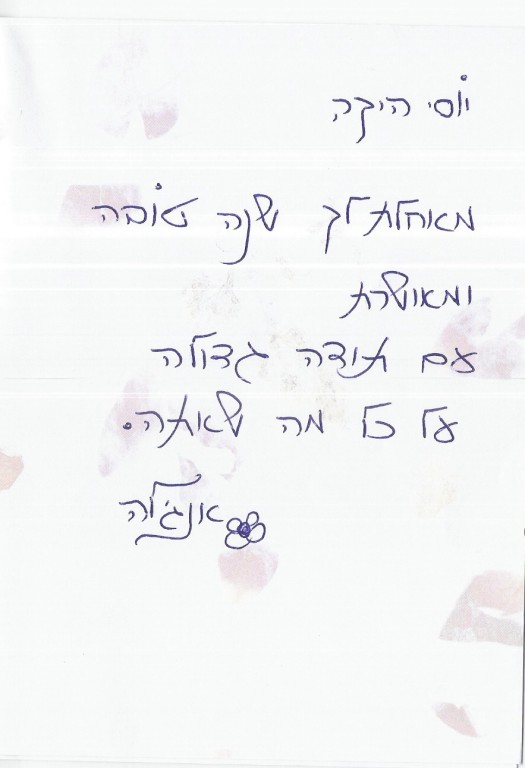 יוסי היקר
מאחלת לך שנה טובה
ומאושרת
עם תודה גדולה
על כל מה שאתה.
אנג'לה